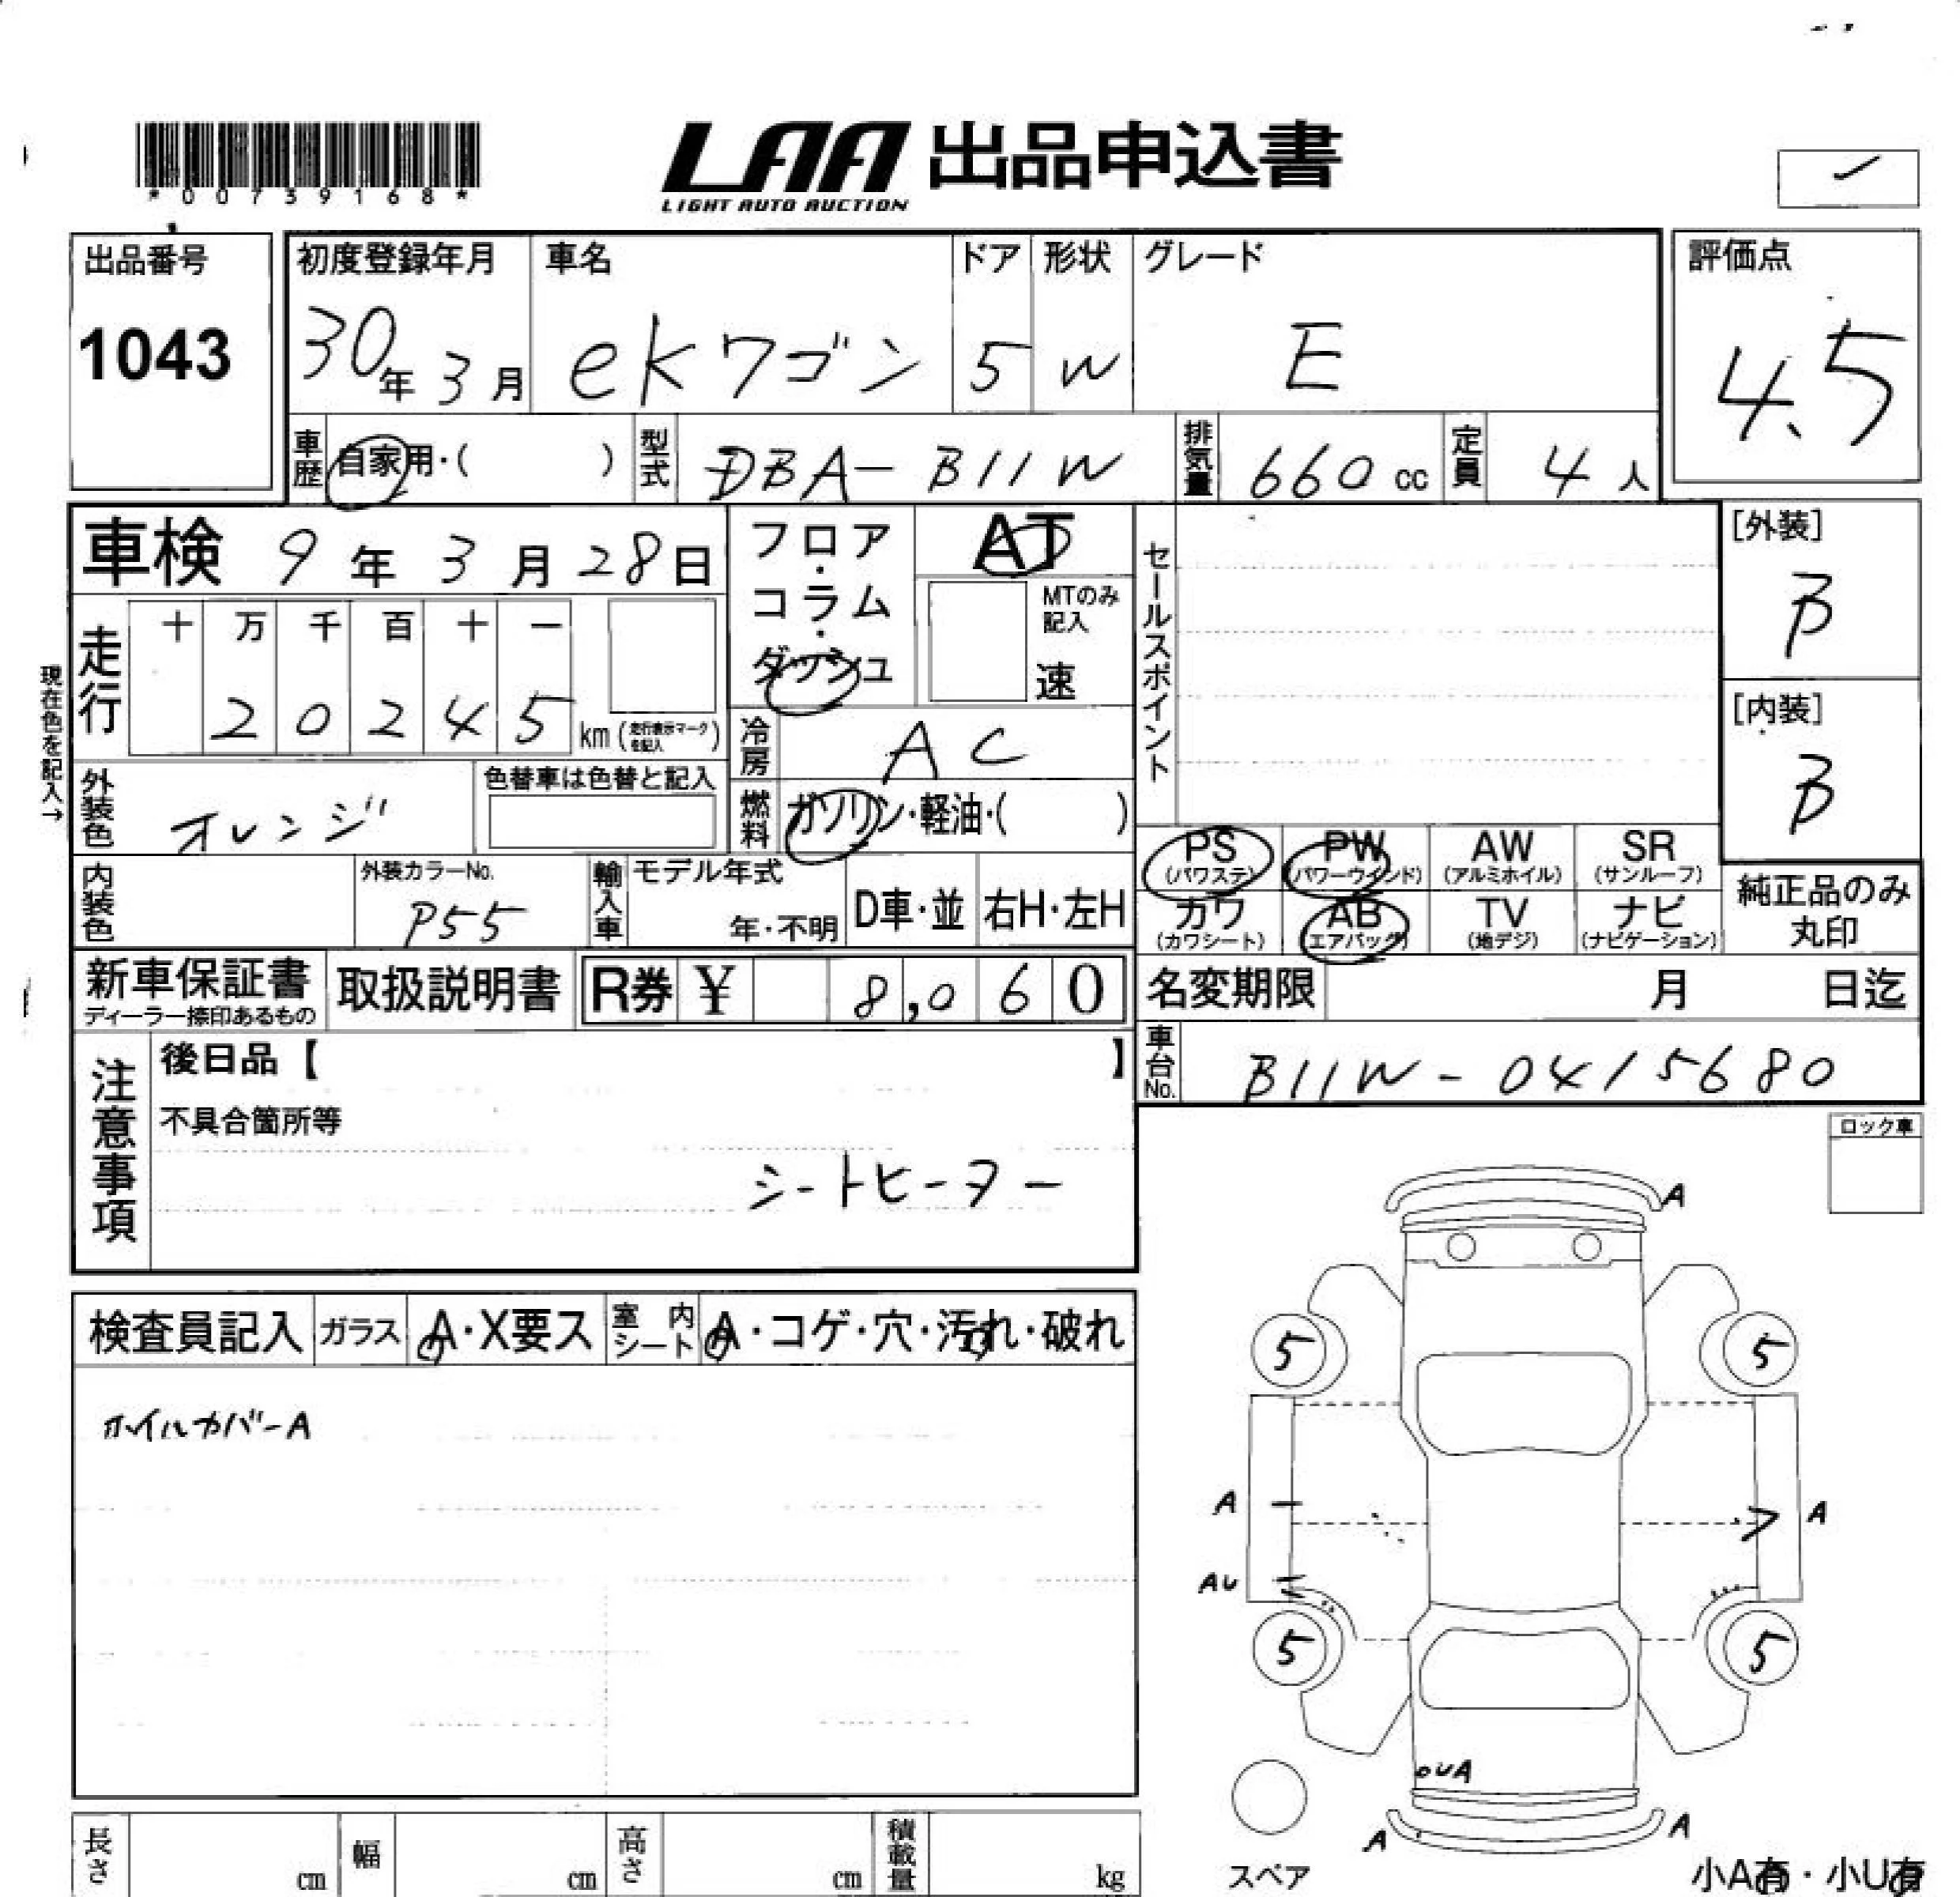 *00739168*
LAA 出品申込書
LIGHT AUTO AUCTION
出品番号
1043
初度登録年月
30年3月
車名
eKワゴン
ドア
5
形状
W
グレード
E
評価点
4.5
車歴 自家用・( )
型式 DBA-B11W
排気量 660cc
定員 4人
車検 9年3月28日
フロア・コラム・ダッシュ
AT
MTのみ記入
速
セールスポイント
[外装]
B
[内装]
B
現在色を記入→
走行
十 万 千 百 十 一
2 0 2 4 5 km (走行表示マークを記入)
冷房 AC
外装色 オレンジ
色替車は色替と記入
燃料 ガソリン・軽油・( )
PS (パワステ)
PW (パワーウインド)
AW (アルミホイル)
SR (サンルーフ)
内装色
外装カラーNo.
P55
輸入車
モデル年式
年・不明
D車・並
右H・左H
カワ (カワシート)
AB (エアバッグ)
TV (地デジ)
ナビ (ナビゲーション)
純正品のみ丸印
新車保証書
ディーラー捺印あるもの
取扱説明書
R券 ¥ 8,060
名変期限 月 日迄
車台No. B11W-0415680
注意事項
後日品【 】
不具合箇所等
シートヒーター
ロック車
検査員記入
ガラス A・X要ス
室内シート A・コゲ・穴・汚れ・破れ
ホイルカバーA
A
5
5
A
A
AU
5
5
UA
A
A
スペア
小A有・小U有
長さ cm
幅 cm
高さ cm
積載量 kg